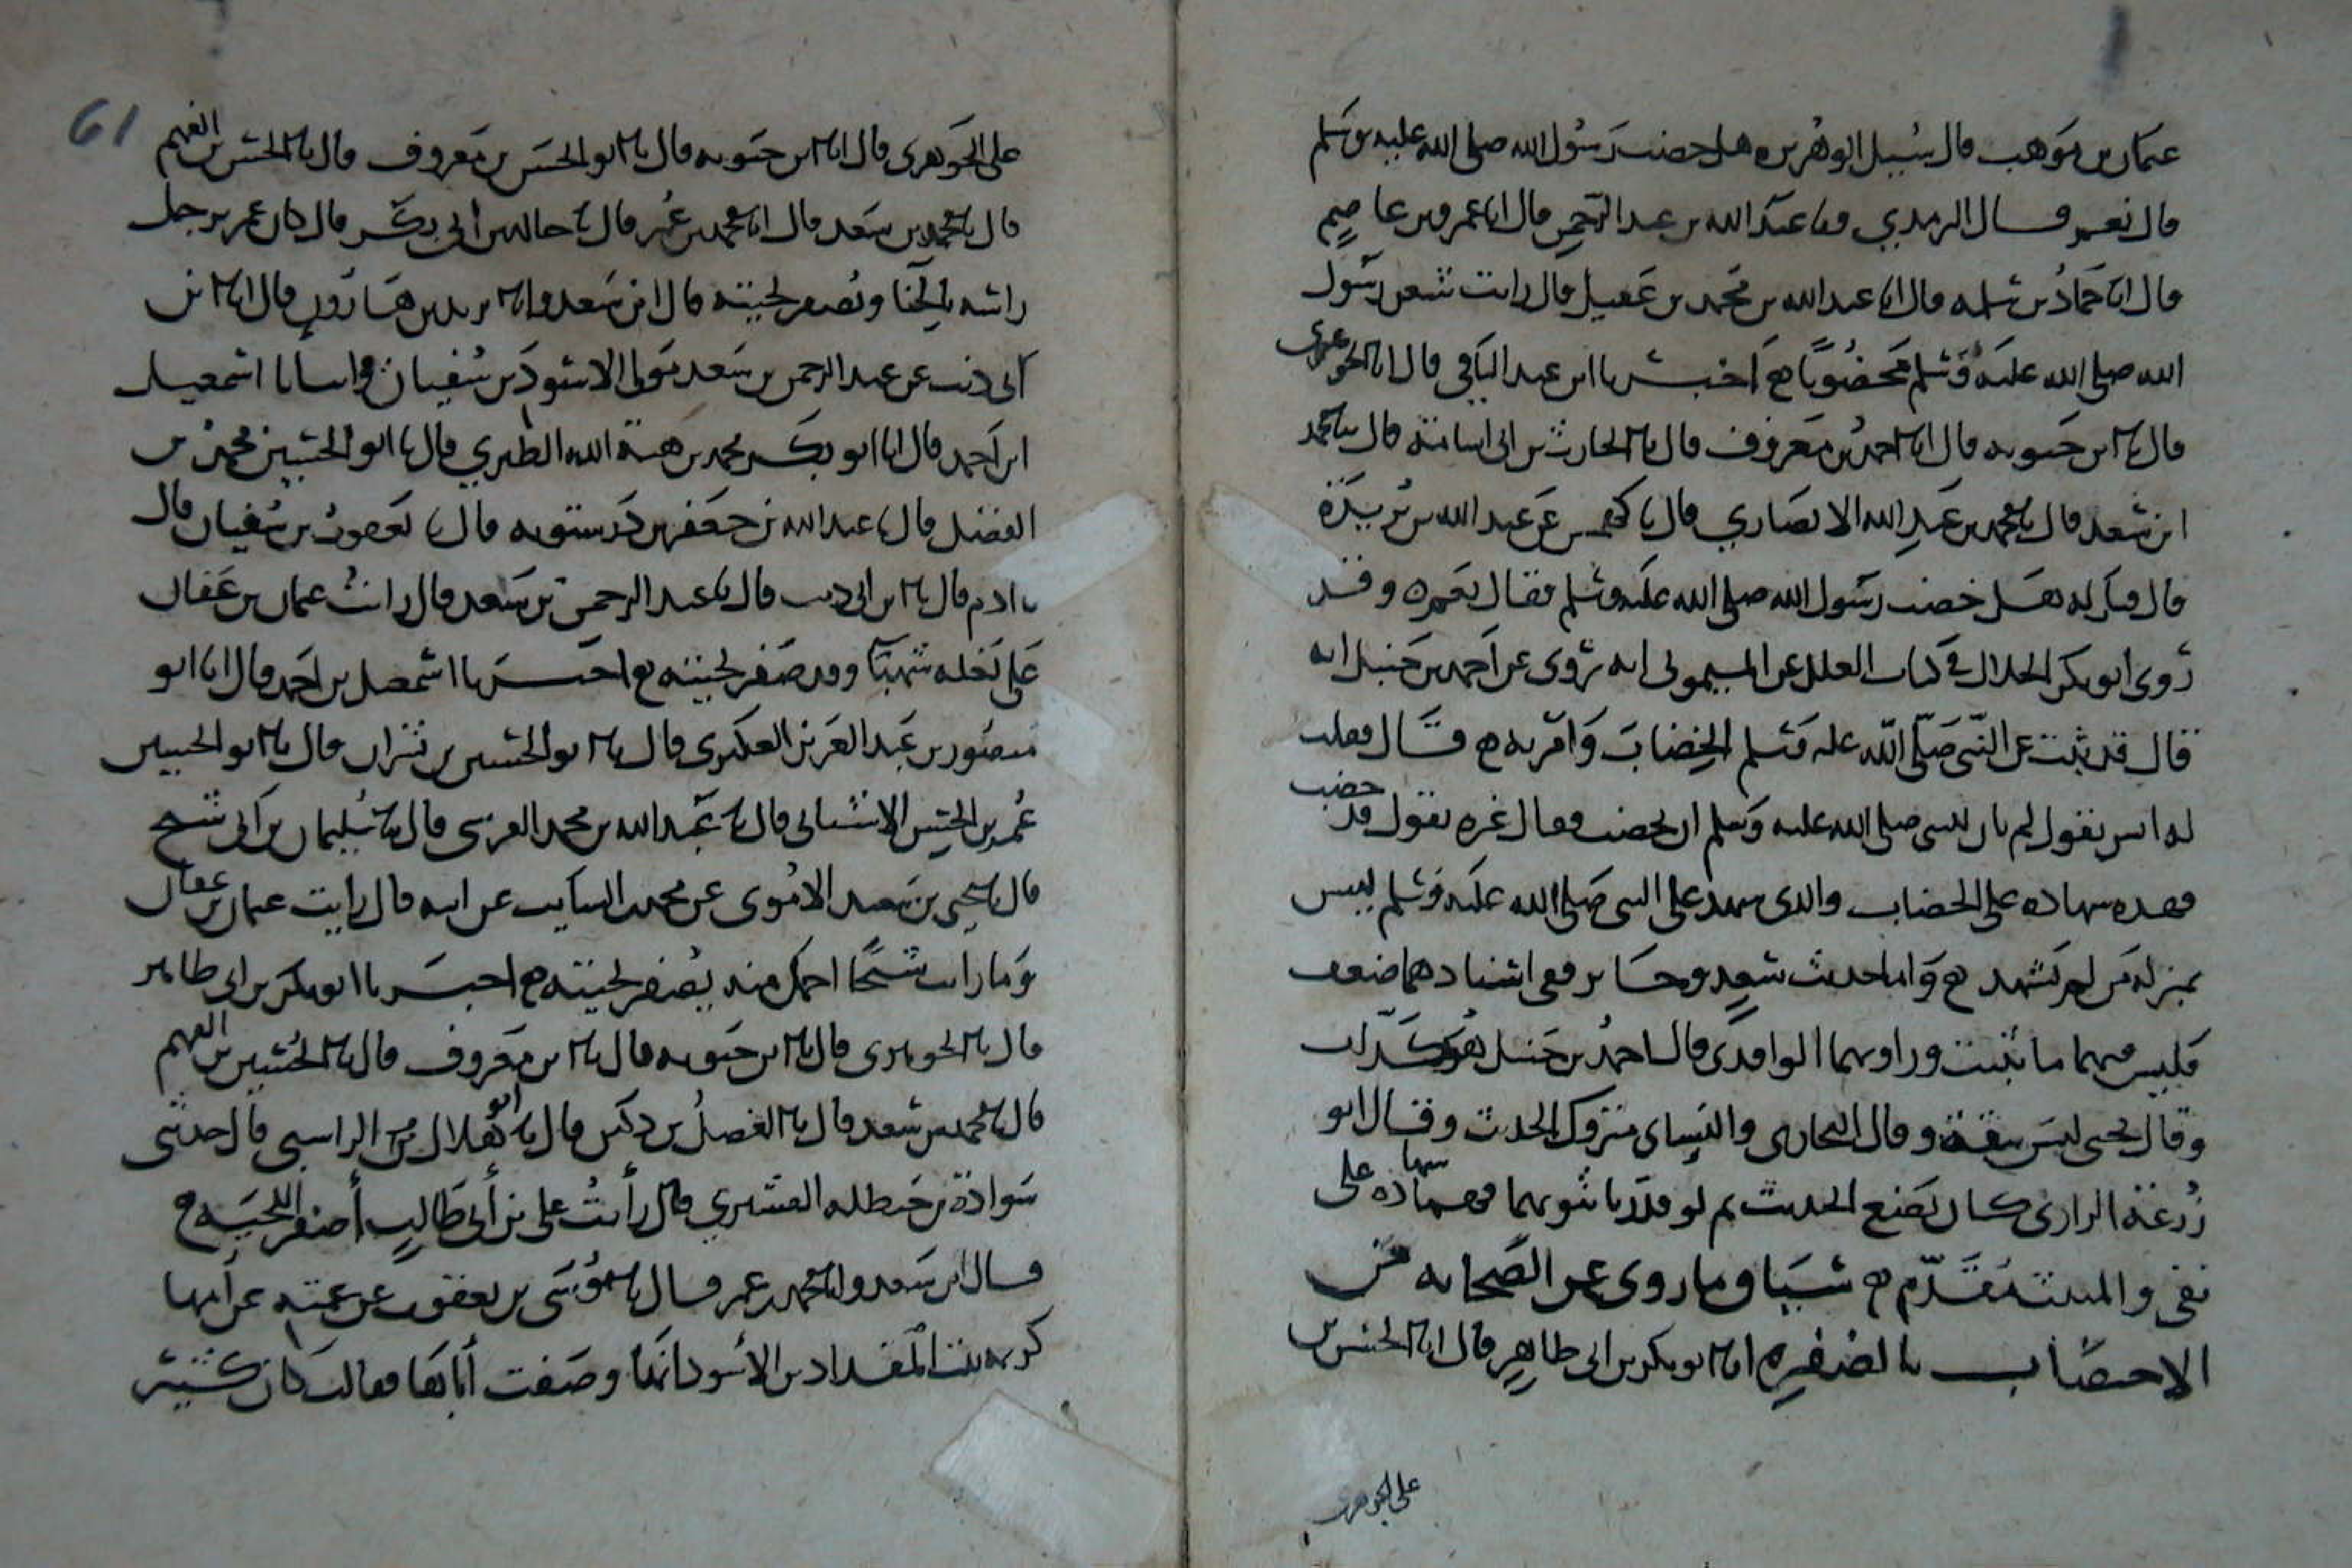 عثمان بن موهب قال سئل ابو هريره هل خضب رسول الله صلى الله عليه وسلم
قال نعم قال الترمدي وثنا عبد الله بن عبد الرحمن قال انا عمرو بن عاصم
قال انا حماد بن سلمه قال انا عبد الله بن محمد بن عقيل قال رايت شعر رسول
الله صلى الله عليه وسلم مخضوبا اخبرنا ابن عبد الباقي قال انا الجوهرى
قال انا ابن حيويه قال انا احمد بن معروف قال نا الحارث بن ابى اسامة قال نا محمد
ابن سعد قال نا محمد بن عبد الله الانصاري قال نا كهمس عن عبد الله بن بريدة
قال قيل له هل خضب رسول الله صلى الله عليه وسلم فقال نعم وقد
روى ابو بكر الخلال في كتاب العلل عن الميمونى انه روى عن احمد بن حنبل انه
قال قد ثبت عن النبى صلى الله عليه وسلم الخضاب وامر به قال فقلت
له انس يقول لم يان للنبى صلى الله عليه وسلم ان يخضب فقال غيره يقول قد خضب
فهده شهاده على الخضاب والدى شهد على النبى صلى الله عليه وسلم ليس
بمنزله من لم يشهد واما حديث سعد وجابر ففى اسنادهما ضعف
فليس فيهما ما يثبت وراويهما الواقدى قال احمد بن حنبل هو كذاب
وقال يحيى ليس بثقة وقال البخارى والنساى متروك الحديث وقال ابو
زرعة الرازى كان يضع الحديث ثم لو قدرنا ثبوتهما فهما شهادة على
نفى والمثبت مقدم سياق ما روى عن الصحابه من
الاختضاب بالصفره انا ابو بكر بن ابى طاهر قال انا الحسن بن
على الجوهرى
61
على الجوهرى قال انا ابن حيويه قال نا ابو الحسن بن معروف قال نا الحسن بن الفهم
قال نا محمد بن سعد قال انا محمد بن عمر قال نا خالد بن ابى بكر قال كان عمر يرجل
راسه بالحنا ويصفر لحيته قال ابن سعد وانا يزيد بن هارون قال انا ابن
ابى ذئب عن عبد الرحمن بن سعد مولى الاسود بن سفيان وانبانا اسمعيل
ابن احمد قال انا ابو بكر محمد بن هبة الله الطبري قال نا ابو الحسين محمد بن
الفضل قال نا عبد الله بن جعفر بن درستويه قال نا يعقوب بن سفيان قال
نا ادم قال نا ابن ابى ذئب قال نا عبد الرحمن بن سعد قال رايت عثمان بن عفان
على بغله شهبا وقد صفر لحيته اخبرنا اسمعيل بن احمد قال انا ابو
منصور بن عبد العزيز العكبرى قال نا ابو الحسين بن بشران قال نا ابو الحسين
عمر بن الحسن الاشنانى قال نا عبد الله بن محمد قال نا سليمان بن ابى شيخ
قال نا يحيى بن سعيد الاموى عن محمد بن السايب عن ابيه قال رايت عثمان بن عفان
وما رايت شيخا اجمل منه يصفر لحيته اخبرنا ابو بكر بن ابى طاهر
قال نا الجوهرى قال نا ابن حيويه قال نا ابن معروف قال نا الحسين بن الفهم
قال نا محمد بن سعد قال نا الفضل بن دكين قال نا ابو هلال الراسبى قال حدثنى
سوادة بن حنظله القشيري قال رأيت على بن أبى طالب أصفر اللحيه
قال ابن سعد وانا محمد بن عمر قال نا موسى بن يعقوب عن عمته عن أمها
كريمه بنت المقداد بن الأسود انها وصفت أباها فقالت كان